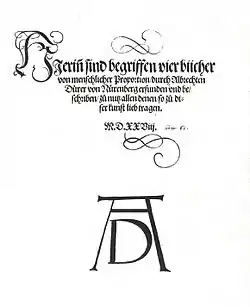 Hieriñ sind begriffen vier bücher
von menschlicher Proportion durch Albrechten
Dürer von Nürenberg erfunden vnd be/
schriben/ zů nutz allen denen so zů di/
ser kunst lieb tragen.
M.D.XXViij.
AD